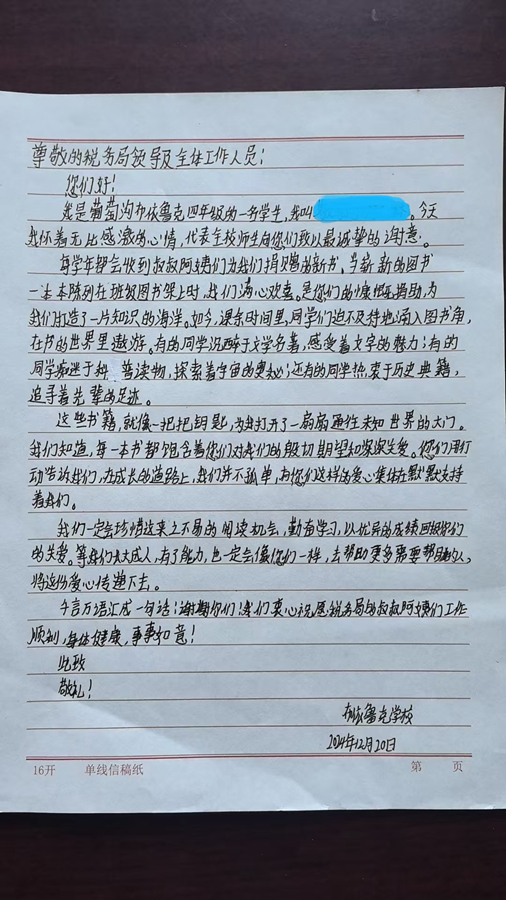 尊敬的税务局领导及全体工作人员：
您们好！
我是葡萄沟布依鲁克四年级的一名学生，我叫。今天
我怀着无比感激的心情，代表全校师生向您们致以最诚挚的谢意。
每学年都会收到叔叔阿姨们为我们捐赠的新书。当崭新的图书
一本本陈列在班级图书架上时，我们满心欢喜。是您们的慷慨资助，为
我们打造了一片知识的海洋。如今，课余时间里，同学们迫不及待地涌入图书角，
在书的世界里遨游。有的同学沉醉于文学名著，感受着文字的魅力；有的
同学痴迷于科普读物，探索着宇宙的奥秘；还有的同学热衷于历史典籍，
追寻着先辈的足迹。
这些书籍，就像一把把钥匙，为我打开了一扇扇通往未知世界的大门。
我们知道，每一本书都饱含着您们对我们的殷切期望和深深关爱。您们用行
动告诉我们，在成长的道路上，我们并不孤单，有您们这样的爱心集体在默默支持
着我们。
我们一定会珍惜这来之不易的阅读机会，勤奋学习，以优异的成绩回报你们
的关爱。等我们长大成人，有了能力，也一定会像您们一样，去帮助更多需要帮助的人，
将这份爱心传递下去。
千言万语汇成一句话：谢谢你们！我们衷心祝愿税务局的叔叔阿姨们工作
顺利，身体健康，事事如意！
此致
敬礼！
布依鲁克学校
2024年12月20日
16开 单线信稿纸 第 页